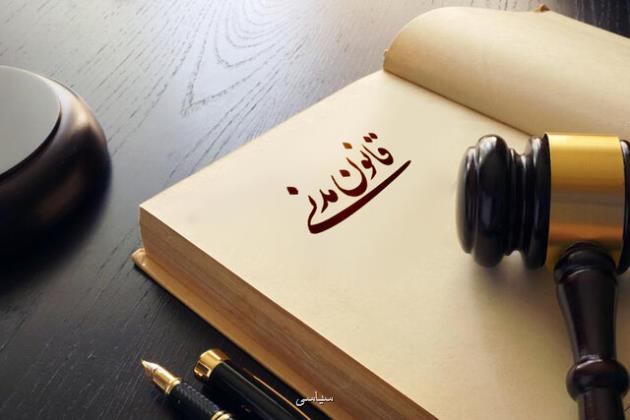 قانون مدنی
سیاسی